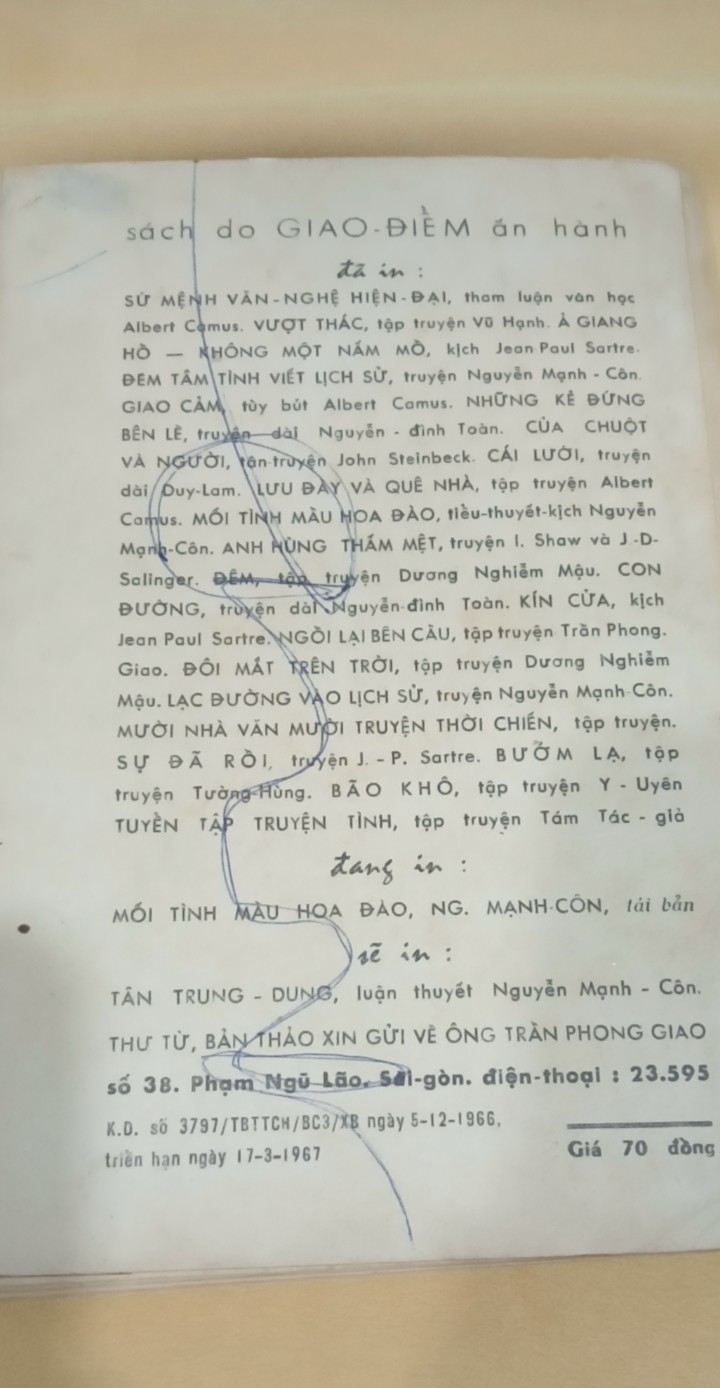 sách do GIAO-ĐIỂM ấn hành
đã in :
SỨ MỆNH VĂN-NGHỆ HIỆN-ĐẠI, tham luận văn học
Albert Camus. VƯỢT THÁC, tập truyện Vũ Hạnh. Ả GIANG
HỒ — KHÔNG MỘT NẤM MỒ, kịch Jean Paul Sartre.
ĐEM TÂM TÌNH VIẾT LỊCH SỬ, truyện Nguyễn Mạnh - Côn.
GIAO CẢM, tùy bút Albert Camus. NHỮNG KẺ ĐỨNG
BÊN LỀ, truyện dài Nguyễn - đình Toàn. CỦA CHUỘT
VÀ NGƯỜI, tân truyện John Steinbeck. CÁI LƯỜI, truyện
dài Duy-Lam. LƯU ĐÀY VÀ QUÊ NHÀ, tập truyện Albert
Camus. MỐI TÌNH MÀU HOA ĐÀO, tiểu-thuyết-kịch Nguyễn
Mạnh-Côn. ANH HÙNG THẤM MỆT, truyện I. Shaw và J-D-
Salinger. ĐÊM, tập truyện Dương Nghiễm Mậu. CON
ĐƯỜNG, truyện dài Nguyễn-đình Toàn. KÍN CỬA, kịch
Jean Paul Sartre. NGỒI LẠI BÊN CẦU, tập truyện Trần Phong.
Giao. ĐÔI MẮT TRÊN TRỜI, tập truyện Dương Nghiễm
Mậu. LẠC ĐƯỜNG VÀO LỊCH SỬ, truyện Nguyễn Mạnh-Côn.
MƯỜI NHÀ VĂN MƯỜI TRUYỆN THỜI CHIẾN, tập truyện.
SỰ ĐÃ RỒI, truyện J. - P. Sartre. BƯỚM LẠ, tập
truyện Tường-Hùng. BÃO KHÔ, tập truyện Y - Uyên
TUYỂN TẬP TRUYỆN TÌNH, tập truyện Tám Tác - giả
đang in :
MỐI TÌNH MÀU HOA ĐÀO, NG. MẠNH-CÔN, tái bản
sẽ in :
TÂN TRUNG - DUNG, luận thuyết Nguyễn Mạnh - Côn.
THƯ TỪ, BẢN THẢO XIN GỬI VỀ ÔNG TRẦN PHONG GIAO
số 38. Phạm Ngũ Lão, Sài-gòn. điện-thoại : 23.595
K.D. số 3797/TBTTCH/BC3/XB ngày 5-12-1966,
triển hạn ngày 17-3-1967
Giá 70 đồng